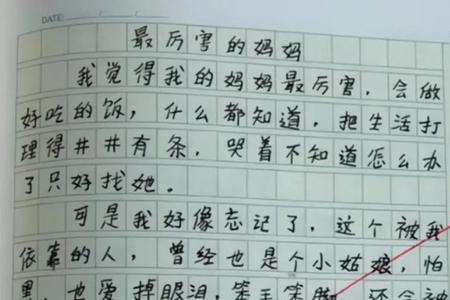 DATE:
最厉害的妈妈
我觉得我的妈妈最厉害，会做
好吃的饭，什么都知道，把生活打
理得井井有条，哭着不知道怎么办
了只好找她。
可是我好像忘记了，这个被我
依靠的人，曾经也是个小姑娘，怕
黑，也爱掉眼泪，笨手笨脚，还会被